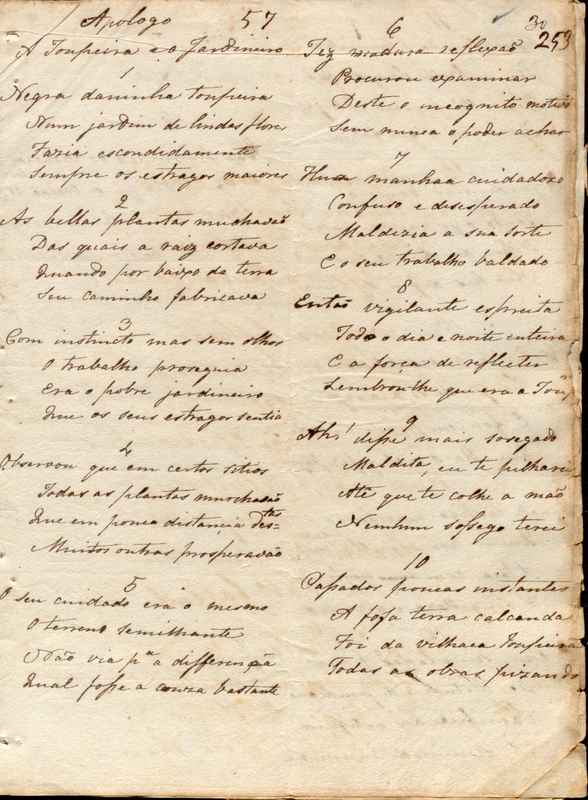 Apologo 57
A Toupeira e o Jardineiro
1
Negra daninha toupeira
Num jardim de lindas flores
Fazia escondidamente
Sempre os estragos maiores
2
As bellas plantas muchavaõ
Das quais a raiz cortava
Quando por baixo da terra
Seu caminho fabricava
3
Com instincto mas sem olhos
O trabalho proseguia
Era o pobre jardineiro
Que os seus estragos sentia
4
Observou que em certos sitios
Todas as plantas murchavaõ
Que em pouca distancia des=
tes
Muitas outras prosperavaõ
5
O seu cuidado era o mesmo
O terreno semilhante
Naõ via pª a differença
Qual fosse a couza bastante
30
253
6
Fez madura reflexaõ
Procurou examinar
Deste o incognito motivo
Sem nunca o poder achar
7
Hua manhaa cuidadozo
Confuso e desesperado
Maldezia a sua sorte
E o seu trabalho baldado
8
Entaõ vigilante espreita
Todo o dia e noite enteira
E a força de reflectir
Lembroulhe que era a Toup
9
Ah! disse mais socegado
Maldita eu te pilharei
Até que te colhe a maõ
Nenhum sossego terei
10
Passados poucos instantes
A fofa terra calcando
Foi da vilhaca Toupeira
Todas as obras pizando